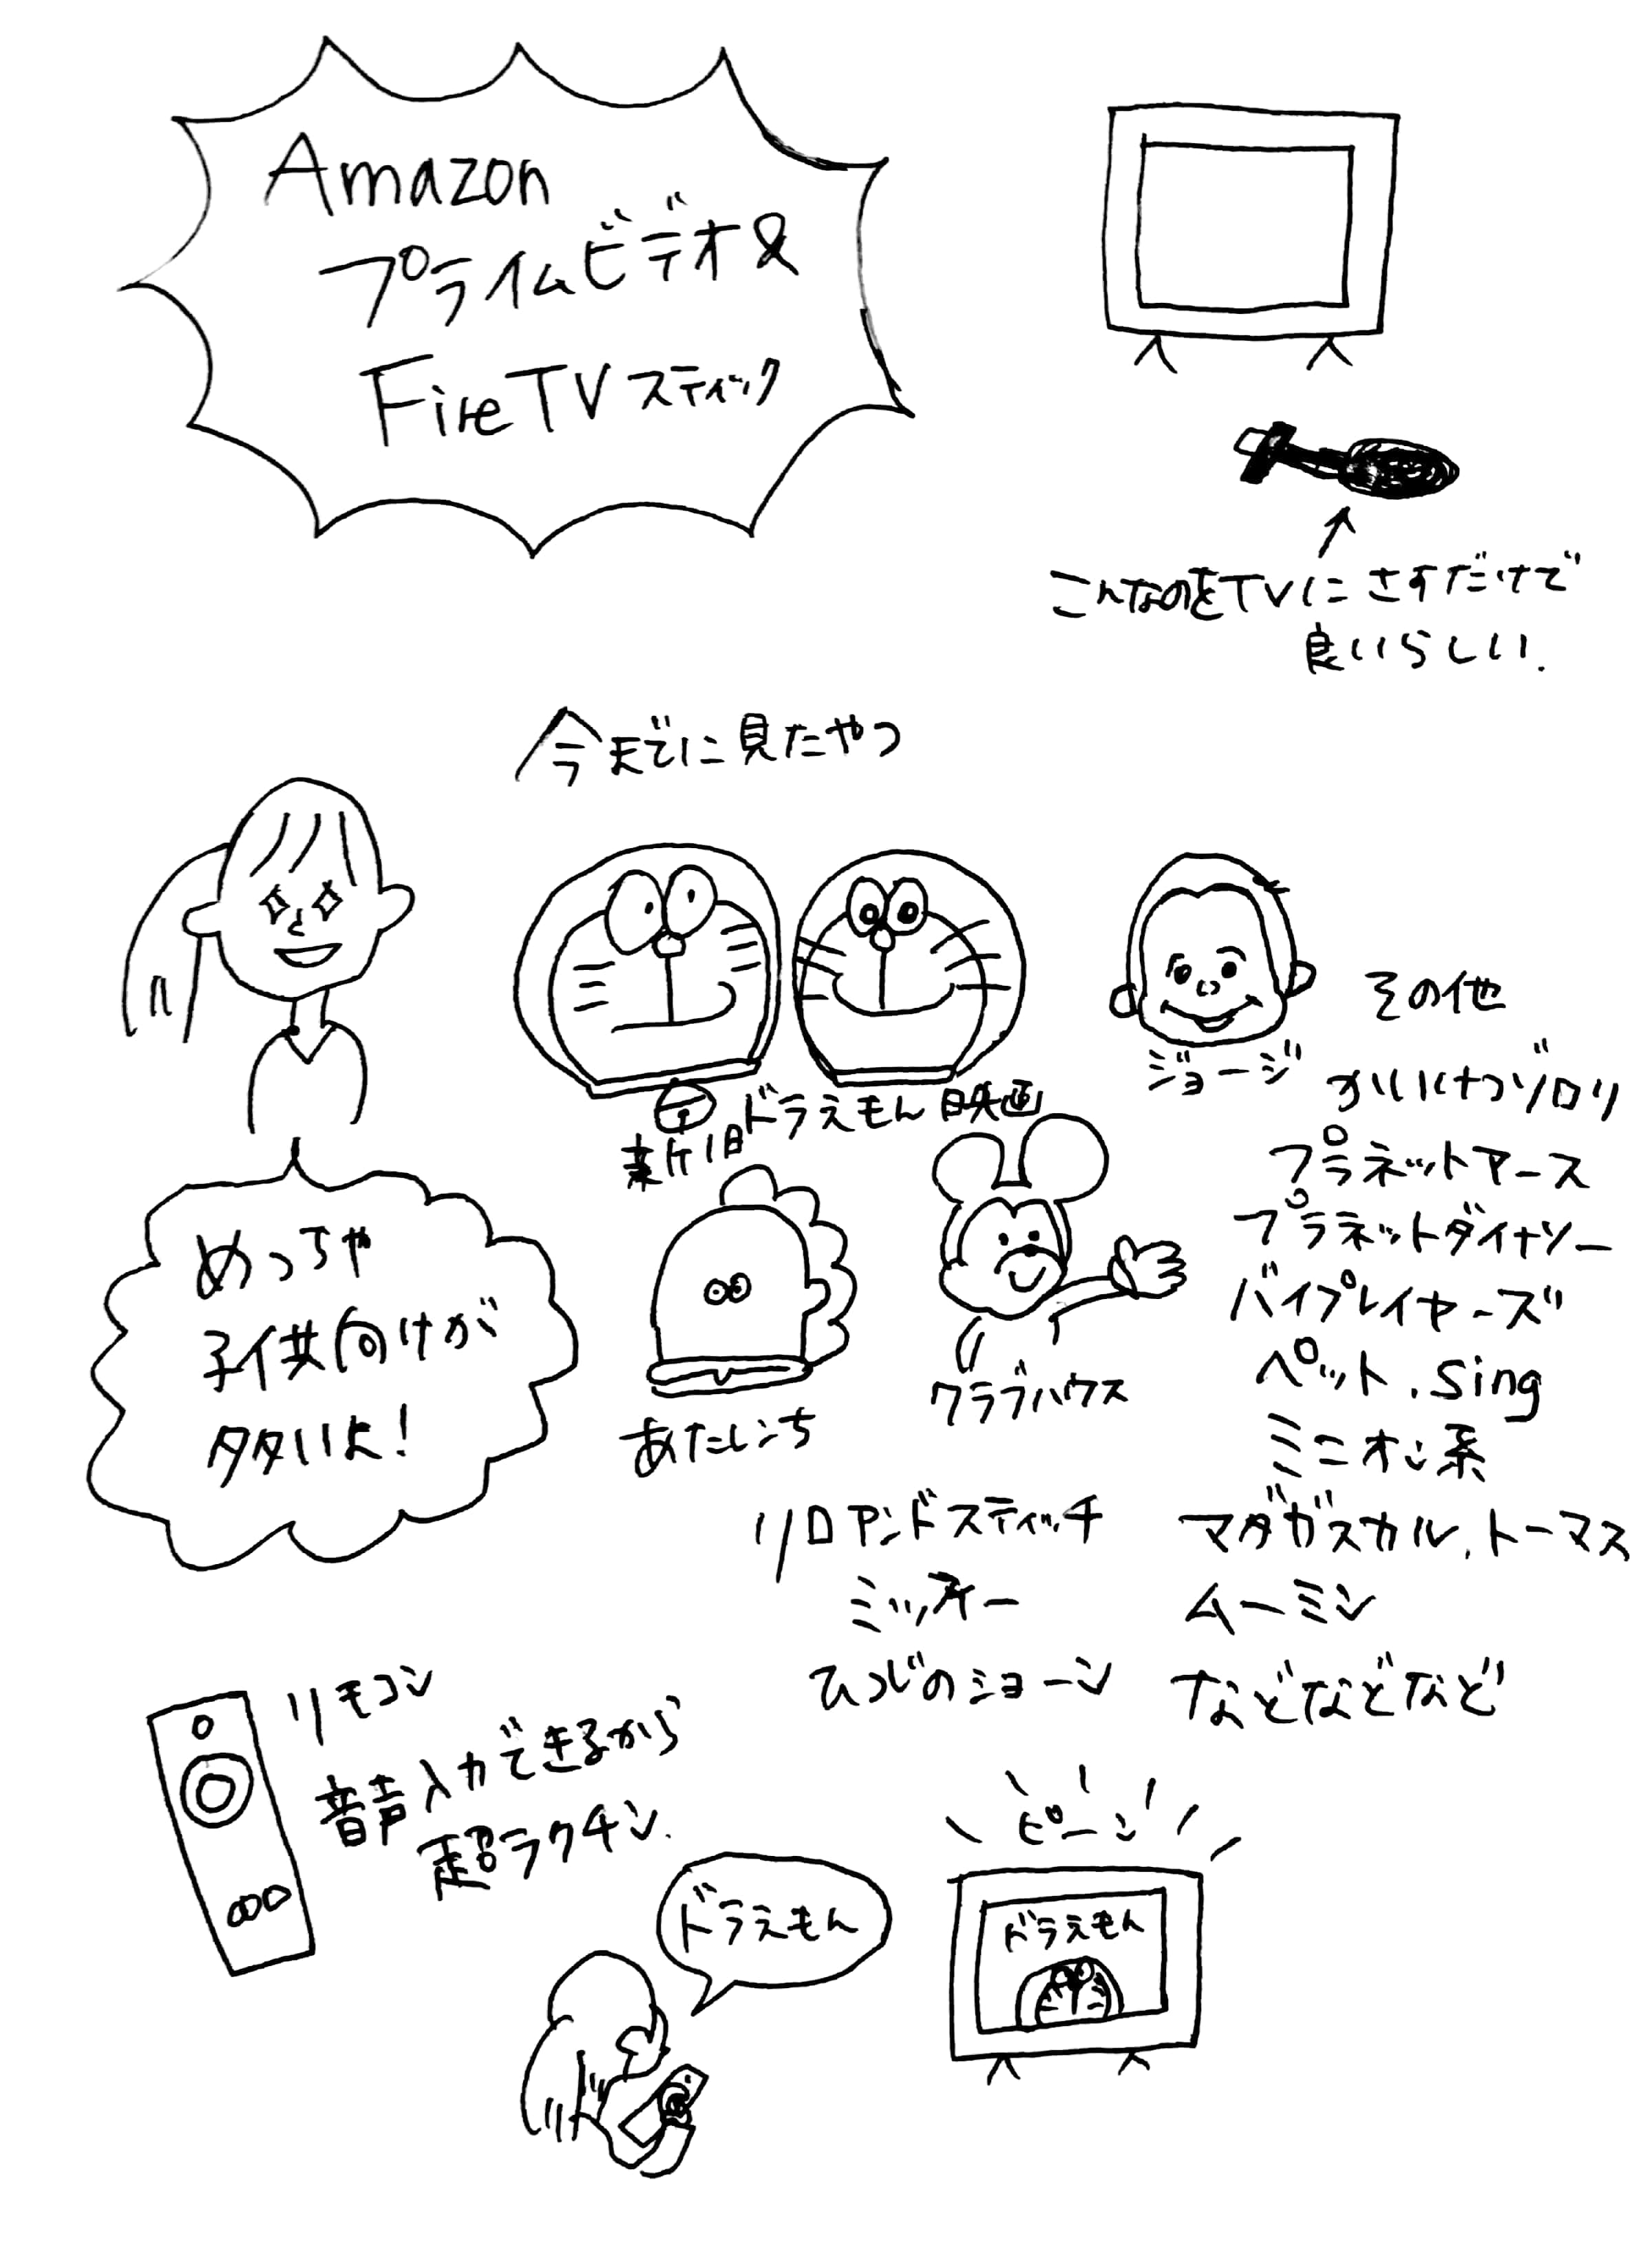 Amazon
プライムビデオ&
FireTVスティック
こんなのをTVにさすだけで
良いらしい.
今までに見たやつ
めっちゃ
子供向けが
多いよ!
新旧ドラえもん映画
ジョージ
あたしンち
クラブハウス
その他
かいけつゾロリ
プラネットアース
プラネットダイナソー
バイプレイヤーズ
ペット.Sing
ミニオン系
マダガスカル.トーマス
ムーミン
などなどなど
リロアンドスティッチ
ミッフィー
ひつじのショーン
リモコン
音声入力できるから
超ラクチン.
ドラえもん
ピーン
ドラえもん